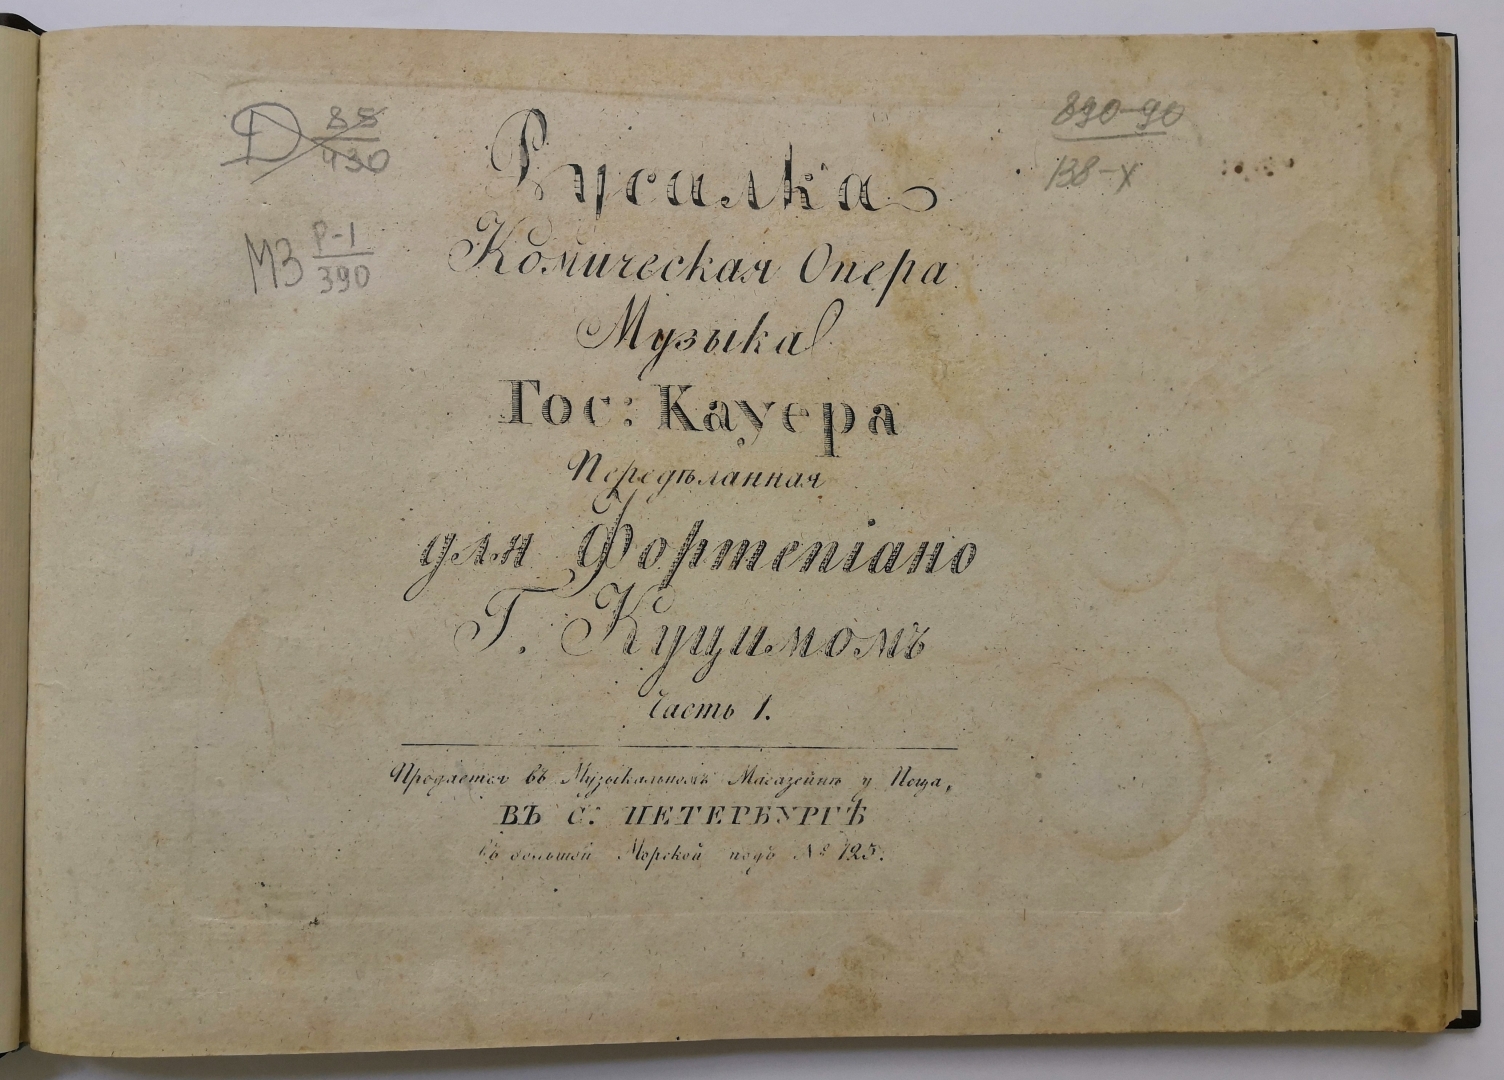 Д 85/430
890-90
138-X
МЗ Р-1/390
Русалка
Комическая Опера
Музыка
Гос: Кауера
Передѣланная
для Фортепіано
Г. Куцимомъ
Часть 1.
Продается въ Музыкальномъ Магазейнѣ у Пеца,
ВЪ С: ПЕТЕРБУРГѢ
въ большой Морской подъ № 125.